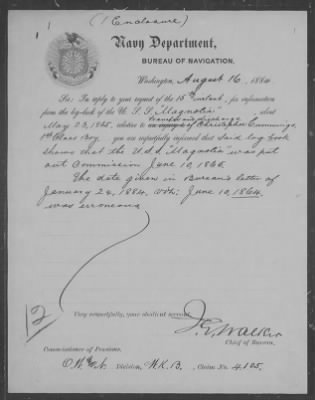 (1 Enclosure)
Navy Department,
BUREAU OF NAVIGATION,
Washington, August 16, 1884.
Sir: In reply to your request of the 15th instant, for information
from the log-book of the U. S. S. "Magnolia" about
transfer and discharge
May 23, 1865, relative to of Christopher Cummings
1st Class Boy, you are respectfully informed that said log book
shows that the U.S.S. "Magnolia" was put
out Commission June 10, 1865.
The date given in Bureau's letter of
January 24, 1884, viz: June 10, 1864,
was erroneous
12
Very respectfully, your obedient servant,
J. G. Walker
Chief of Bureau.
Commissioner of Pensions.
Division, Claim No. 4,125.